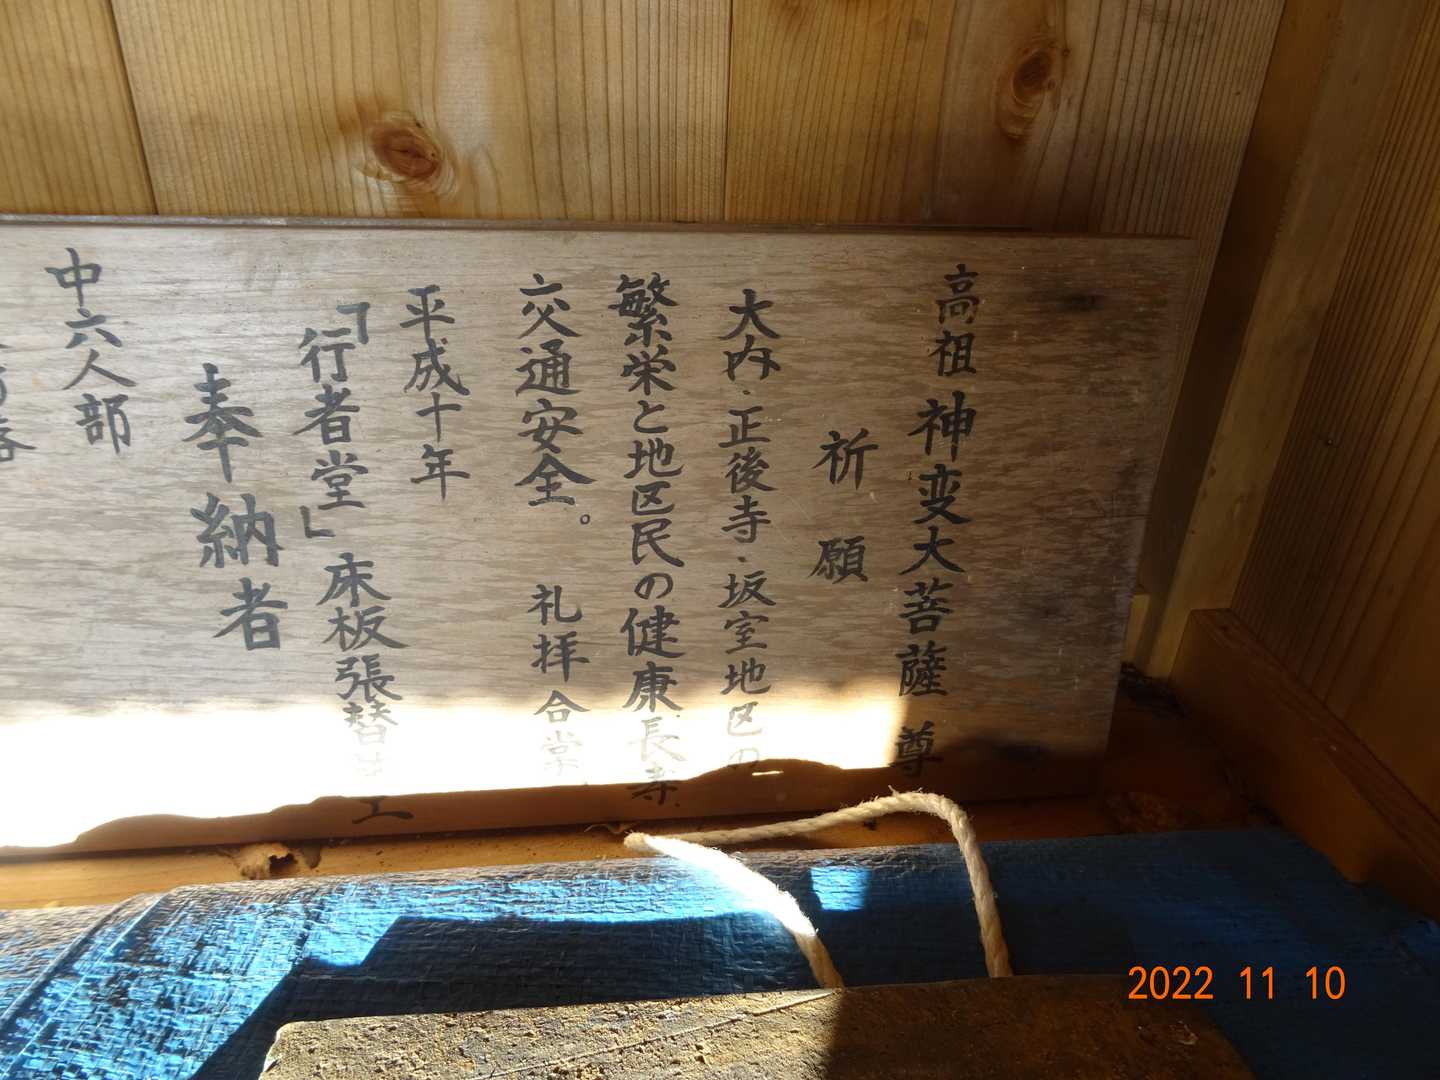 高祖 神変大菩薩 尊
祈願
大内・正後寺・坂室地区の
繁栄と地区民の健康長寿
交通安全。 礼拝合掌
平成十年
「行者堂」床板張替
奉納者
中六人部
2022 11 10